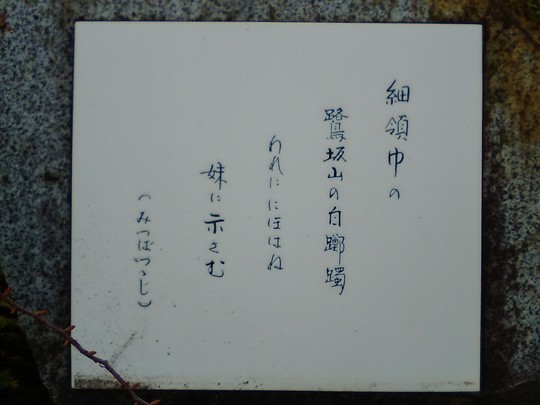 細領巾の
鷺坂山の白躑躅
われににほはね
妹に示さむ
（みつばつゝじ）